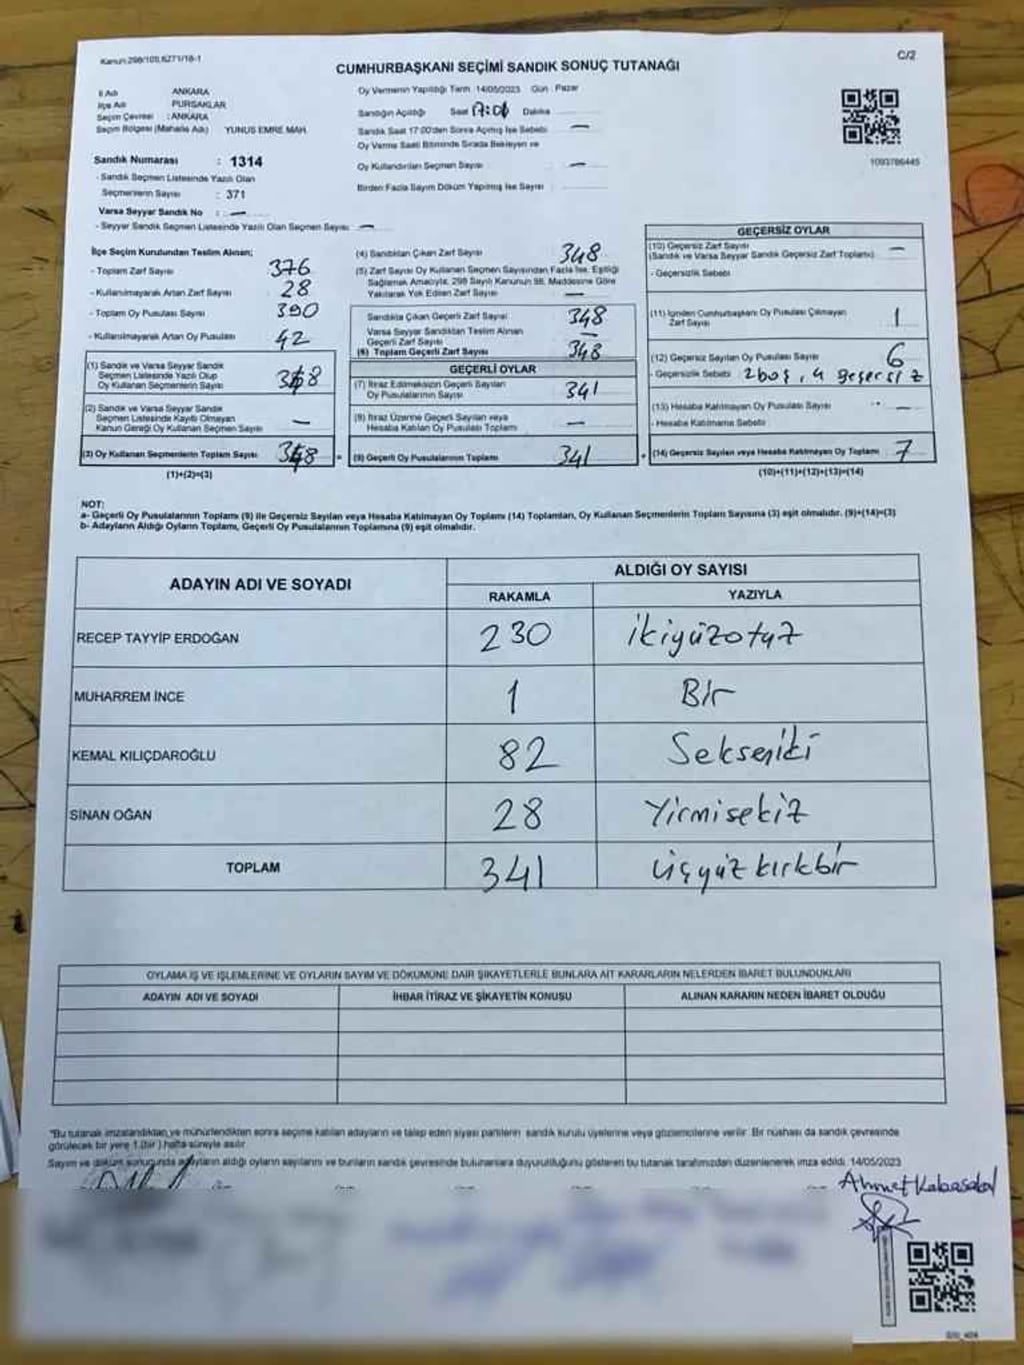 Kanun:298/105,6271/18-1
C/2
CUMHURBAŞKANI SEÇİMİ SANDIK SONUÇ TUTANAĞI
İl Adı ANKARA
İlçe Adı PURSAKLAR
Seçim Çevresi : ANKARA
Seçim Bölgesi (Mahalle Adı) YUNUS EMRE MAH.
Sandık Numarası : 1314
- Sandık Seçmen Listesinde Yazılı Olan
Seçmenlerin Sayısı : 371
Varsa Seyyar Sandık No : —
- Seyyar Sandık Seçmen Listesinde Yazılı Olan Seçmen Sayısı : —
Oy Vermenin Yapıldığı Tarih 14/05/2023 Gün : Pazar
Sandığın Açıldığı Saat 17:01 Dakika
Sandık Saat 17:00'den Sonra Açılmış İse Sebebi —
Oy Verme Saati Bitiminde Sırada Bekleyen ve
Oy Kullandırılan Seçmen Sayısı : —
Birden Fazla Sayım Döküm Yapılmış İse Sayısı :
1093786445
İlçe Seçim Kurulundan Teslim Alınan;
- Toplam Zarf Sayısı 376
- Kullanılmayarak Artan Zarf Sayısı 28
- Toplam Oy Pusulası Sayısı 390
- Kullanılmayarak Artan Oy Pusulası 42
(1) Sandık ve Varsa Seyyar Sandık
Seçmen Listesinde Yazılı Olup
Oy Kullanan Seçmenlerin Sayısı 348
(2) Sandık ve Varsa Seyyar Sandık
Seçmen Listesinde Kayıtlı Olmayan
Kanun Gereği Oy Kullanan Seçmen Sayısı —
(3) Oy Kullanan Seçmenlerin Toplam Sayısı 348
(1)+(2)=(3)
(4) Sandıktan Çıkan Zarf Sayısı 348
(5) Zarf Sayısı Oy Kullanan Seçmen Sayısından Fazla İse, Eşitliği
Sağlamak Amacıyla, 298 Sayılı Kanunun 98. Maddesine Göre
Yakılarak Yok Edilen Zarf Sayısı —
Sandıkta Çıkan Geçerli Zarf Sayısı 348
Varsa Seyyar Sandıktan Teslim Alınan
Geçerli Zarf Sayısı —
(6) Toplam Geçerli Zarf Sayısı 348
GEÇERLİ OYLAR
(7) İtiraz Edilmeksizin Geçerli Sayılan
Oy Pusulalarının Sayısı 341
(8) İtiraz Üzerine Geçerli Sayılan veya
Hesaba Katılan Oy Pusulası Toplamı —
(9) Geçerli Oy Pusulalarının Toplamı 341
GEÇERSİZ OYLAR
(10) Geçersiz Zarf Sayısı —
(Sandık ve Varsa Seyyar Sandık Geçersiz Zarf Toplamı)
- Geçersizlik Sebebi
(11) İçinden Cumhurbaşkanı Oy Pusulası Çıkmayan
Zarf Sayısı 1
(12) Geçersiz Sayılan Oy Pusulası Sayısı 6
- Geçersizlik Sebebi 2 boş, 4 geçersiz
(13) Hesaba Katılmayan Oy Pusulası Sayısı —
- Hesaba Katılmama Sebebi
(14) Geçersiz Sayılan veya Hesaba Katılmayan Oy Toplamı 7
(10)+(11)+(12)+(13)=(14)
NOT:
a- Geçerli Oy Pusulalarının Toplamı (9) ile Geçersiz Sayılan veya Hesaba Katılmayan Oy Toplamı (14) Toplamları, Oy Kullanan Seçmenlerin Toplam Sayısına (3) eşit olmalıdır. (9)+(14)=(3)
b- Adayların Aldığı Oyların Toplamı, Geçerli Oy Pusulalarının Toplamına (9) eşit olmalıdır.
ADAYIN ADI VE SOYADI ALDIĞI OY SAYISI
RAKAMLA YAZIYLA
RECEP TAYYİP ERDOĞAN 230 ikiyüzotuz
MUHARREM İNCE 1 Bir
KEMAL KILIÇDAROĞLU 82 Sekseniki
SİNAN OĞAN 28 Yirmisekiz
TOPLAM 341 üçyüzkırkbir
OYLAMA İŞ VE İŞLEMLERİNE VE OYLARIN SAYIM VE DÖKÜMÜNE DAİR ŞİKAYETLERLE BUNLARA AİT KARARLARIN NELERDEN İBARET BULUNDUKLARI
ADAYIN ADI VE SOYADI İHBAR İTİRAZ VE ŞİKAYETİN KONUSU ALINAN KARARIN NEDEN İBARET OLDUĞU
"Bu tutanak imzalandıktan ve mühürlendikten sonra seçime katılan adayların ve talep eden siyasi partilerin sandık kurulu üyelerine veya gözlemcilerine verilir. Bir nüshası da sandık çevresinde
görülecek bir yere 1 (bir) hafta süreyle asılır.
Sayım ve döküm sonucunda adayların aldığı oyların sayılarını ve bunların sandık çevresinde bulunanlara duyurulduğunu gösteren bu tutanak tarafımızdan düzenlenerek imza edildi. 14/05/2023
Ahmet Kabasakal